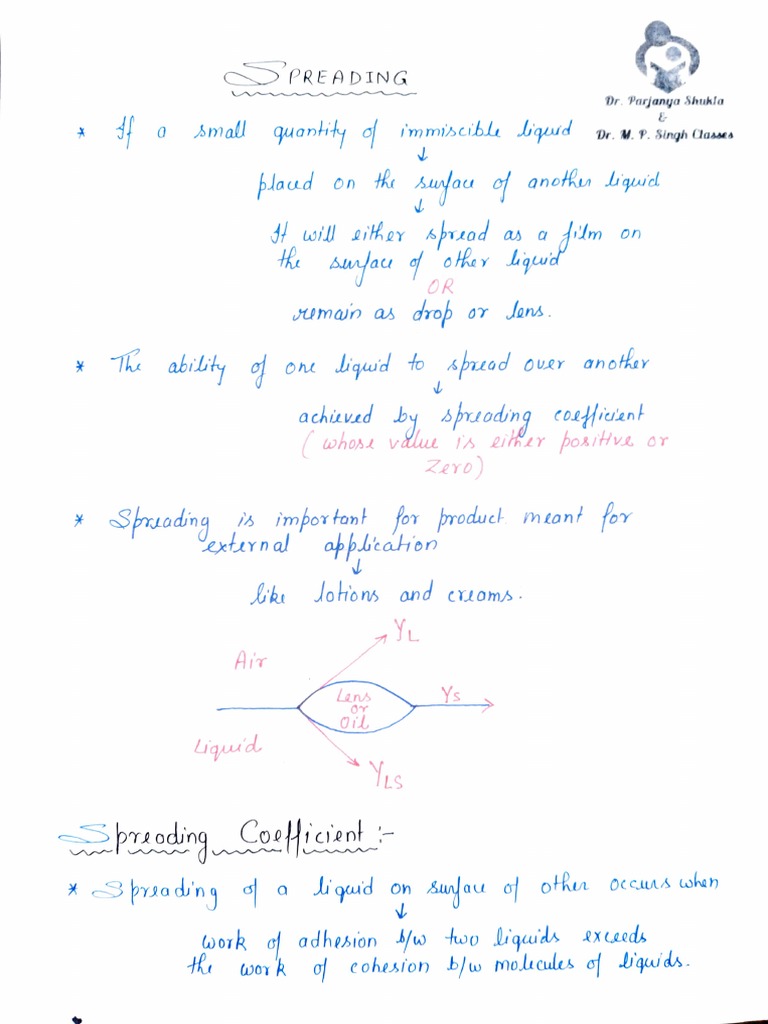 SPREADING
Dr. Parjanya Shukla
&
Dr. M. P. Singh Classes
* If a small quantity of immiscible liquid
↓
placed on the surface of another liquid
↓
It will either spread as a film on
the surface of other liquid
OR
remain as drop or lens.
* The ability of one liquid to spread over another
↓
achieved by spreading coefficient
(whose value is either positive or
zero)
* Spreading is important for product meant for
external application
↓
like lotions and creams.
Air
γL
Lens
or
Oil
γS
Liquid
γLS
Spreading Coefficient:-
* Spreading of a liquid on surface of other occurs when
↓
work of adhesion b/w two liquids exceeds
the work of cohesion b/w molecules of liquids.